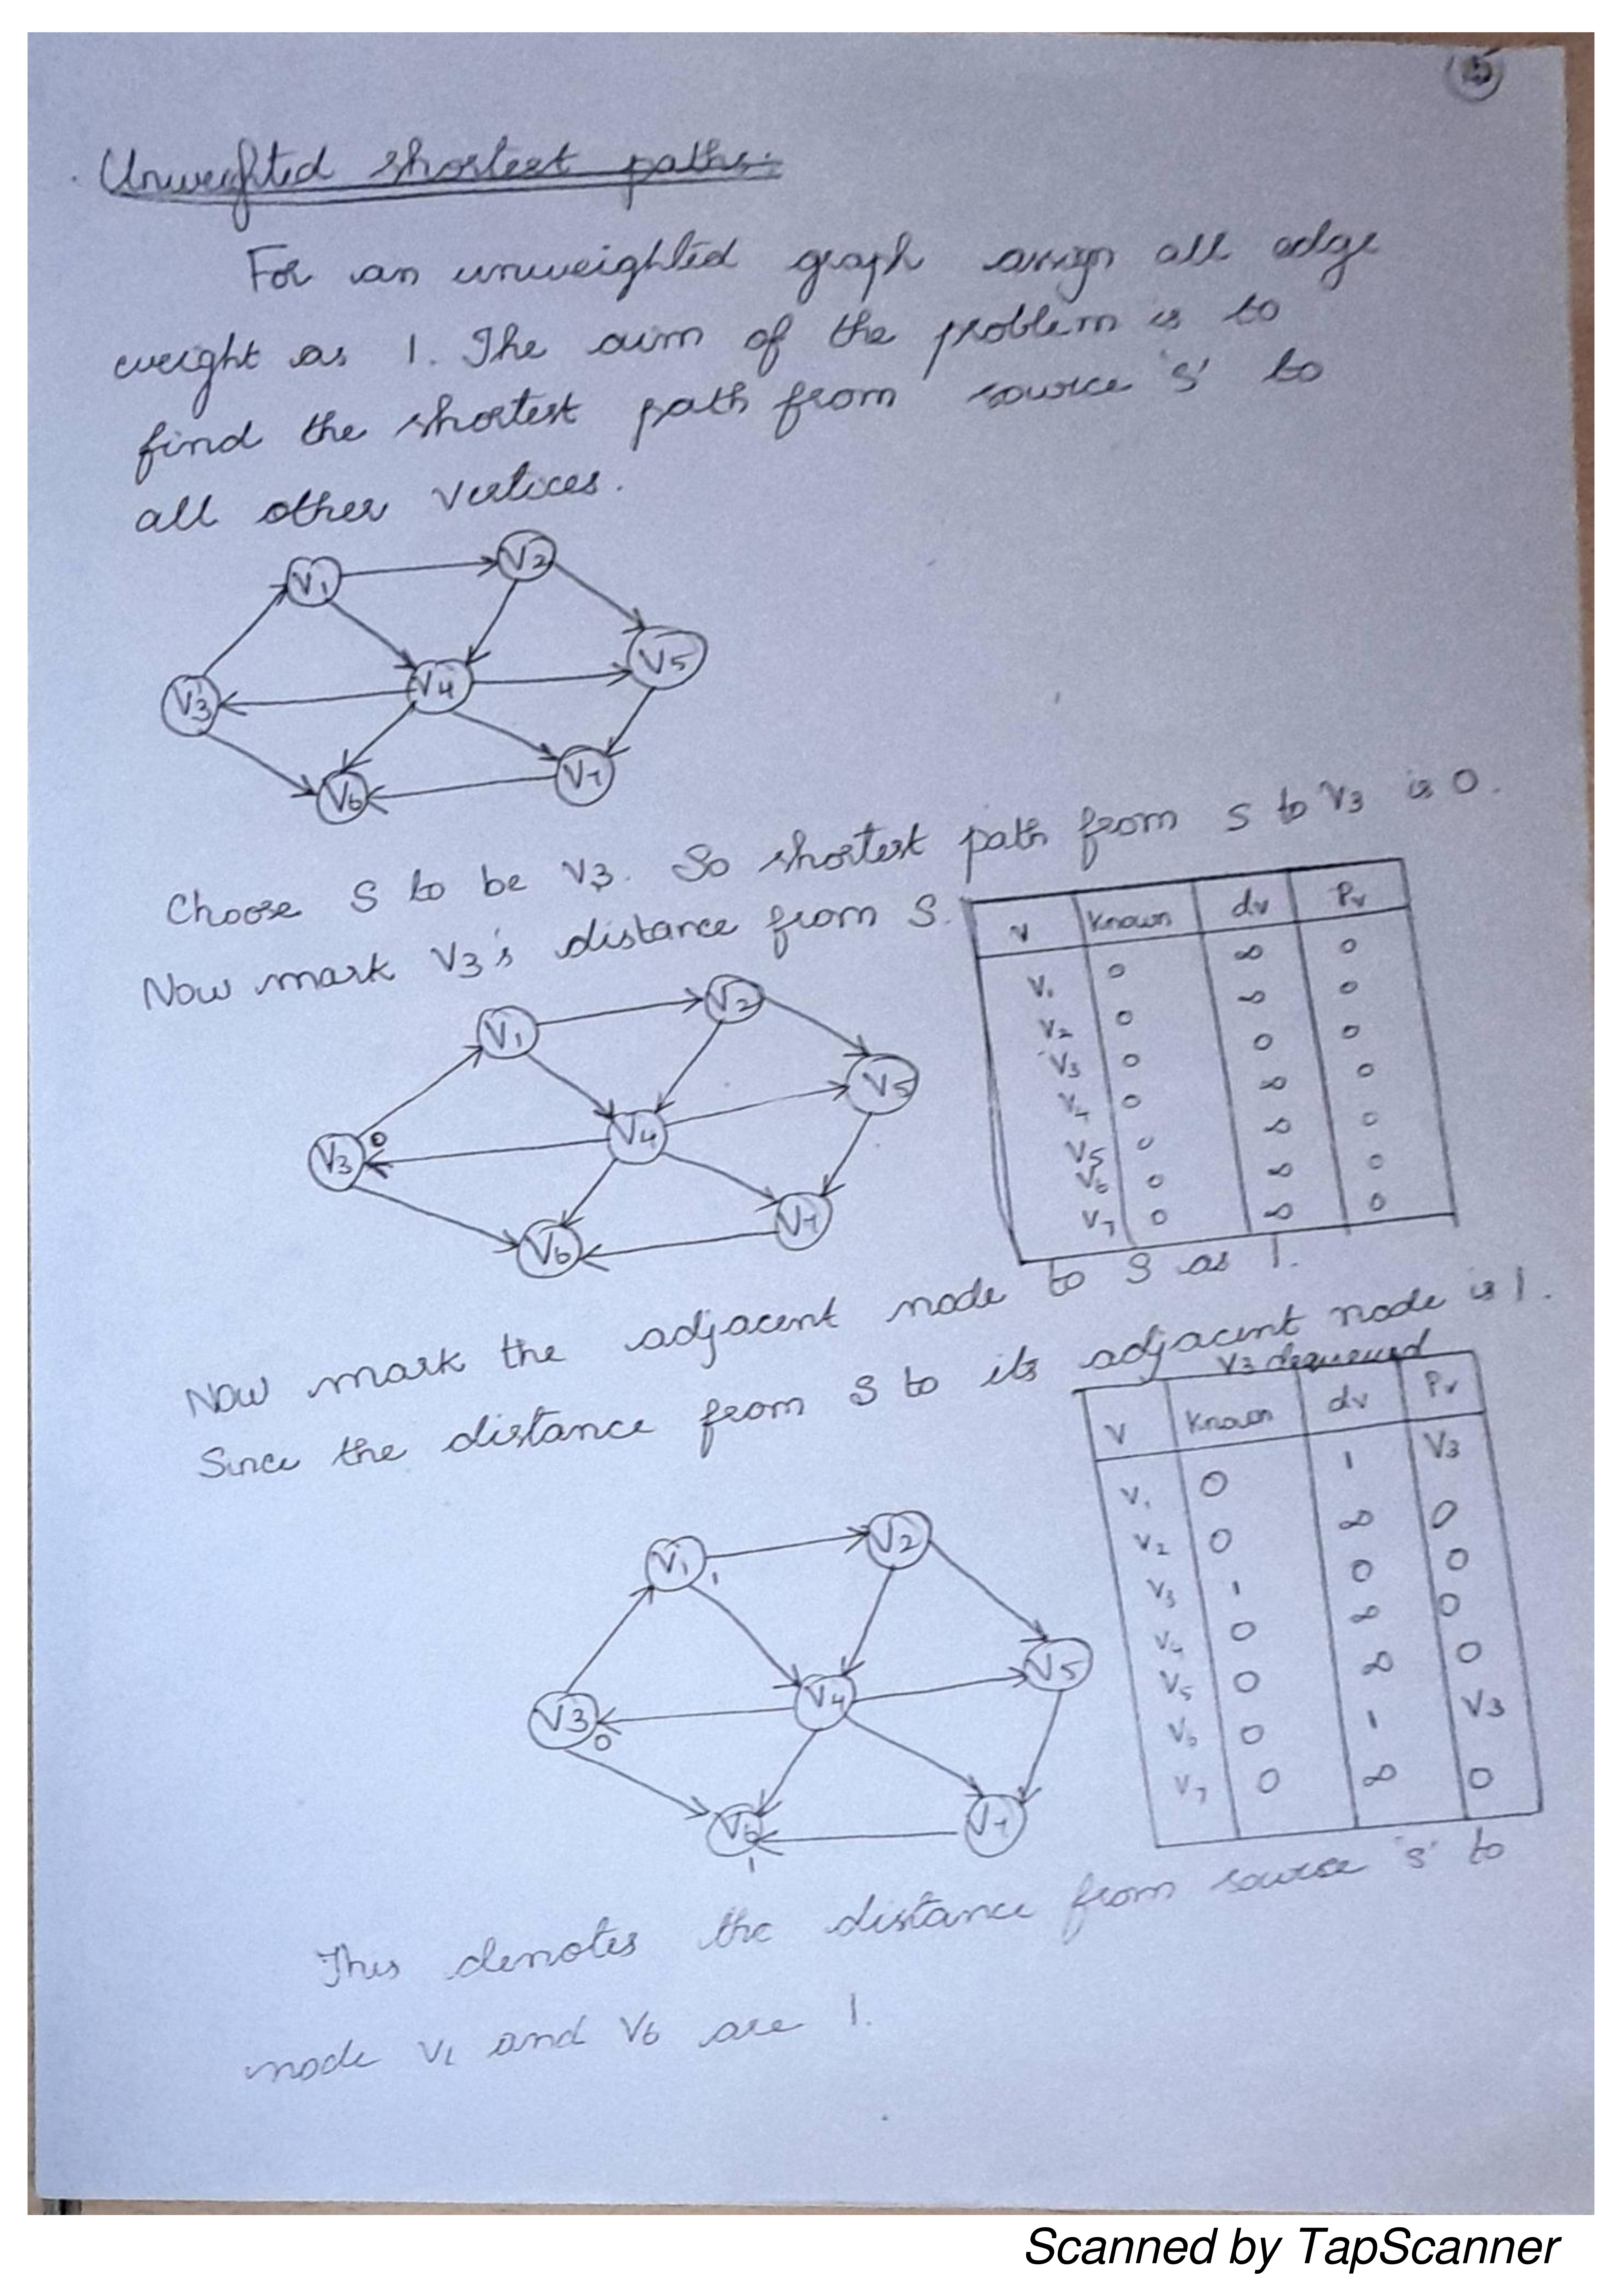 Unweighted shortest paths:
For an unweighted graph assign all edge
weight as 1. The aim of the problem is to
find the shortest path from source 's' to
all other vertices.
V1 V2
V3 V4 V5
V6 V7
Choose S to be V3. So shortest path from S to V3 is 0.
Now mark V3's distance from S.
V Known dv Pv
V1 0 ∞ 0
V2 0 ∞ 0
V3 0 0 0
V4 0 ∞ 0
V5 0 ∞ 0
V6 0 ∞ 0
V7 0 ∞ 0
V1 V2
V3 0 V4 V5
V6 V7
Now mark the adjacent node to S as 1.
Since the distance from S to its adjacent node is 1.
V3 dequeued
V Known dv Pv
V1 0 1 V3
V2 0 ∞ 0
V3 1 0 0
V4 0 ∞ 0
V5 0 ∞ 0
V6 0 1 V3
V7 0 ∞ 0
V1 1 V2
V3 0 V4 V5
V6 1 V7
This denotes the distance from source 's' to
node V1 and V6 are 1.
Scanned by TapScanner